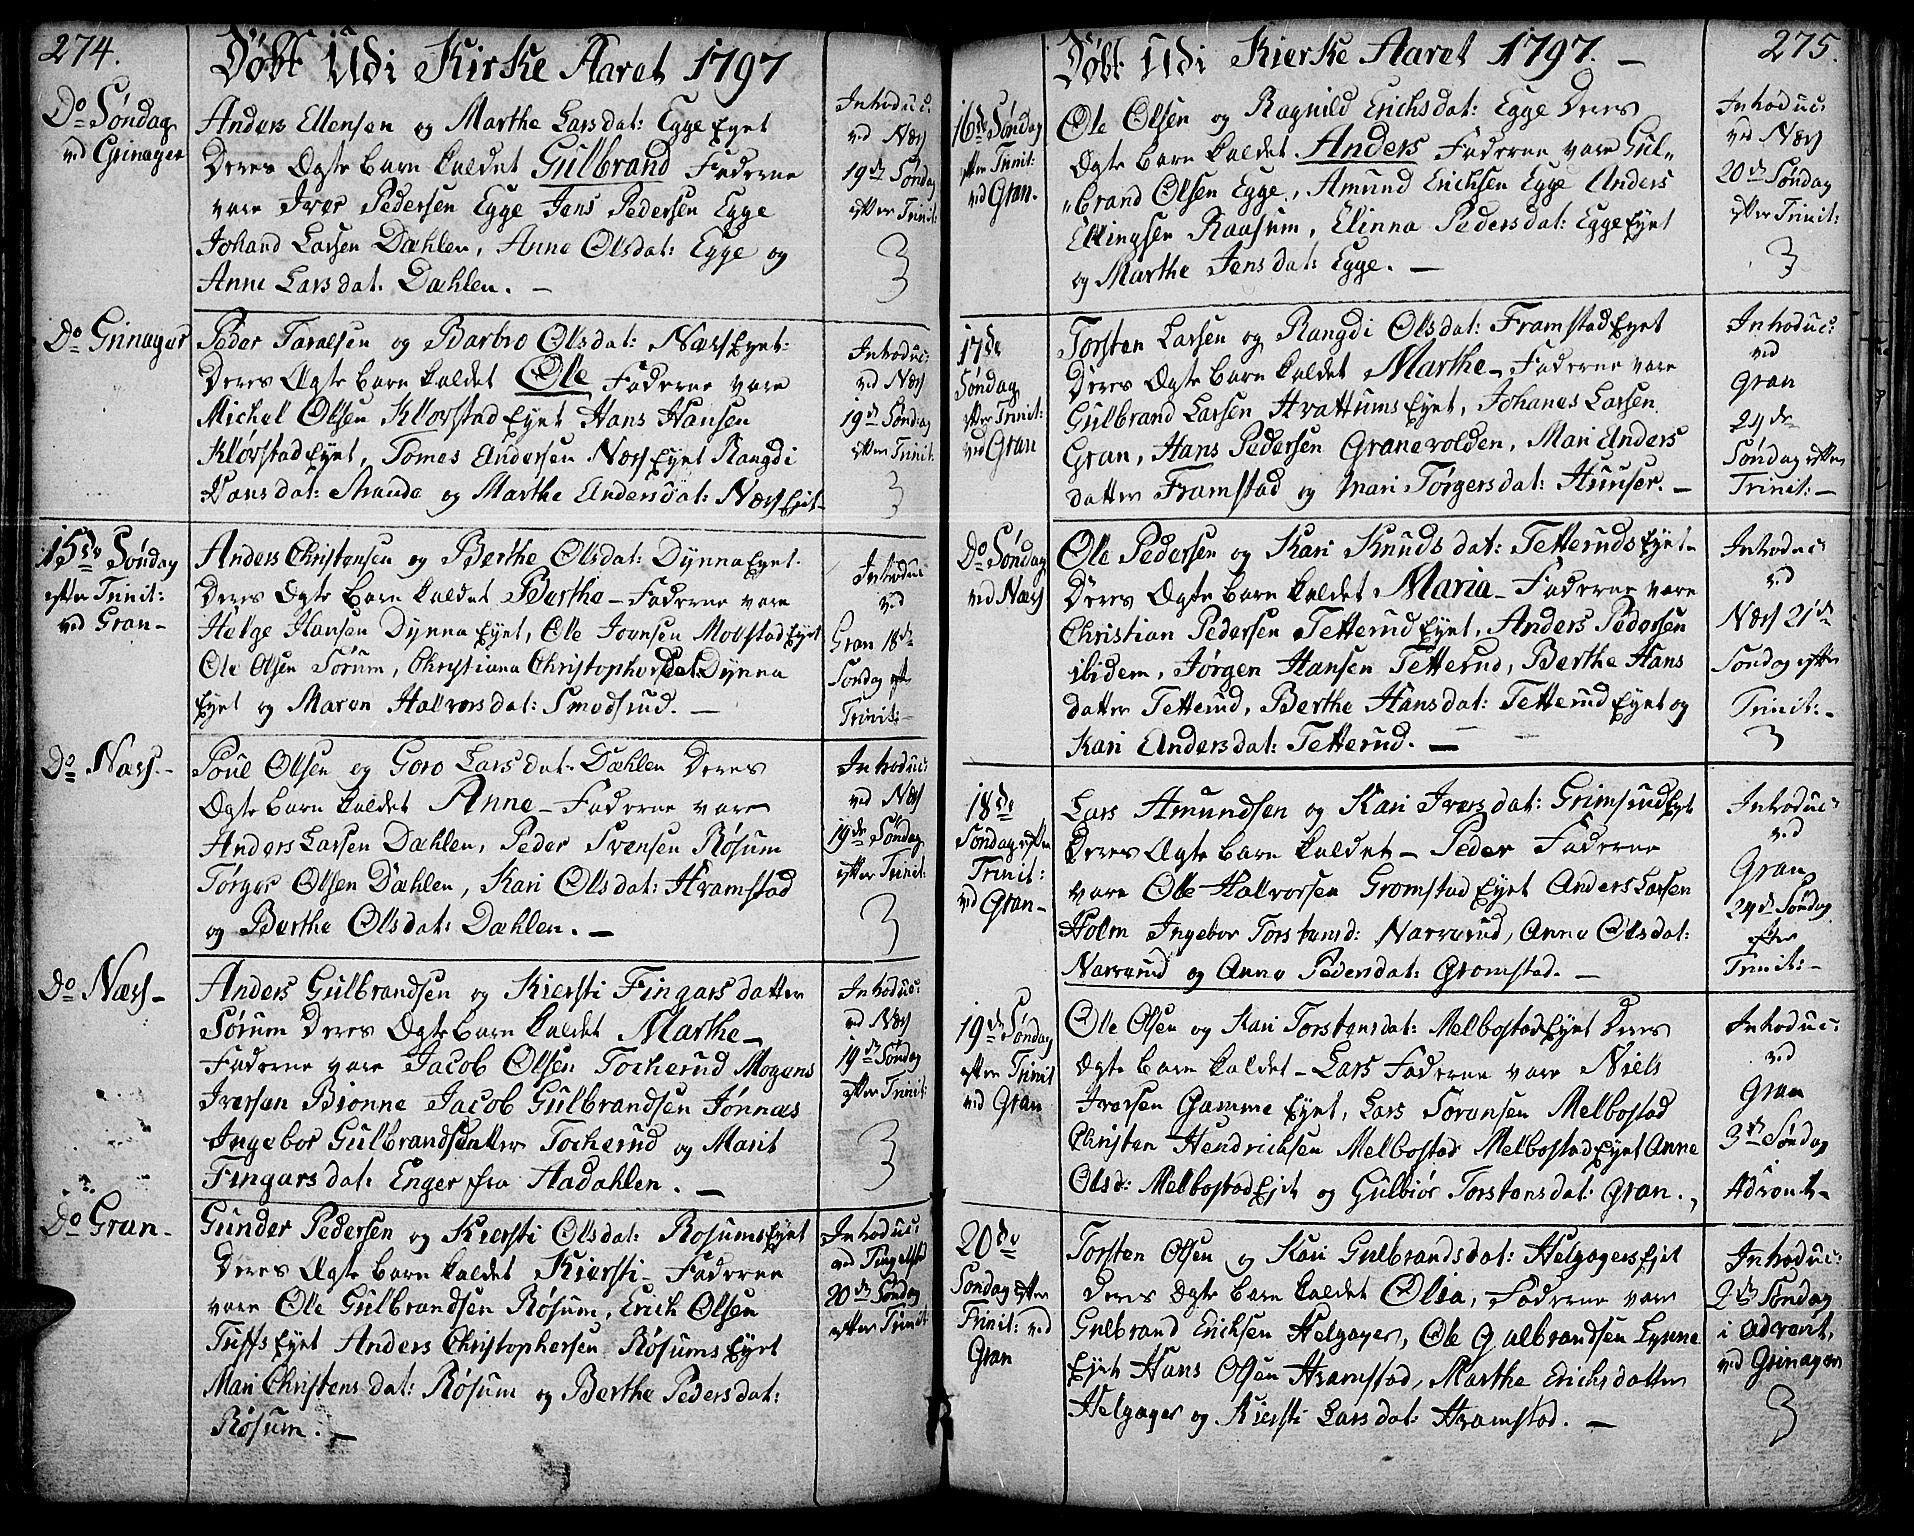 274.
Döbt Udi Kirke Aaret 1797
Do Søndag
ved Grinager
Anders Ellensen og Marthe Larsdat: Egge Eyet
Deres Ægte barn kaldet Gulbrand Faderne
vare Iver Pedersen Egge Jens Pedersen Egge
Johand Larsen Dæhlen, Anne Olsdat: Egge og
Anne Larsdat: Dæhlen. —
Introduc:
ved Næss
19de Søndag
efter Trinit:
3
Do Grinager
Peder Taralsen og Barbro Olsdat: Næss Eyet:
Deres Ægte barn kaldet Ole Faderne vare
Michel Olsen Klovstad Eyet Hans Hansen
Klovstad Eyet, Tomes Andersen Næss Eyet Rangdi
Hansdat: Skande og Marthe Andersdat: Næss Eiet-
Introduc:
ved Næss
19de Søndag
efter Trinit:
3
15de Søndag
efter Trinit:
ved Gran-
Anders Christensen og Berthe Olsdat: Dynna Eyet.
Deres Ægte barn kaldet Berthe- Faderne vare
Helge Hansen Dynna Eyet, Ole Iversen Molstad Eyet
Ole Olsen Sørum, Christiana Christophersdat Dynna
Eyet og Maren Halvorsdat: Smedsrud. —
Introduc
ved
Gran 18de
Søndag eft
Trinit:-
Do Næss.-
Poul Olsen og Goro Larsdat. Dæhlen Deres
Ægte barn kaldet Anne- Faderne vare
Anders Larsen Dæhlen, Peder Svensen Røsum
Tørger Olsen Dæhlen, Kari Olsdat: Hramstad
og Berthe Olsdat: Dæhlen. —
Introduc:
ved Næss
19de Søndag
efter Trinit:
3
Do Næss-
Anders Gulbrandsen og Kiersti Fingarsdatter
Sørum Deres Ægte barn kaldet Marthe-
Faderne vare Jacob Olsen Tocherud Mogens
Iversen Bionne Jacob Gulbrandsen Jønnaes
Ingebor Gulbrandsdatter Tocherud og Marit
Fingarsdat: Enger fra Aadahlen. —
Introduc:
ved Næss
19de Søndag
efter Trinit:
3
Do Gran-
Gunder Pedersen og Kiersti Olsdat: Rosums Eyet
Deres Ægte barn kaldet Kiersti- Faderne
vare Ole Gulbrandsen Røsum, Erich Olsen
Tuffs Eyet Anders Christophersen Røsums Eyet
Mari Christensdat: Røsum og Berthe Pedersdat:
Røsum. —
Introduc:
ved Tingelstad
20de Søndag
efter Trinit
Döbt Udi Kierke Aaret 1797. —
275.
16de Søndag
efter Trinit:
ved Gran.
Ole Olsen og Ragnild Erichsdat: Egge Deres
Ægte barn kaldet Anders Faderne vare Gul„
„brand Olsen Egge, Amund Erichsen Egge Anders
Ellingsen Raasum, Elinna Pedersdat: Egge Eyet
og Marthe Jensdat: Egge. —
Introduc:
ved Næss
20de Søndag
efter Trinit:
3
17de
Søndag
efter Trinit:
ved Gran
Torsten Larsen og Rangdi Olsdat: Framstad Eyet
Deres Ægte barn kaldet Marthe- Faderne vare
Gulbrand Larsen Hvattums Eyet, Johanes Larsen
Gran, Hans Pedersen Granevolden, Mari Anders
datter Framstad og Mari Tørgersdat: Huuser. —
Introduc:
ved
Gran
24de
Søndag efter
Trinit:-
Do Søndag
ved Næss
Ole Pedersen og Kari Knudsdat: Tetteruds Eyet-
Deres Ægte barn kaldet Maria- Faderne vare
Christian Pedersen Tetterud Eyet, Anders Pedersen
ibidem, Jørgen Hansen Tetterud, Berthe Hans
datter Tetterud, Berthe Hansdat: Tetterud Eyet og
Kari Andersdat: Tetterud. —
Introduc:
ved
Næss 21de
Søndag efter
Trinit:-
3
18de
Søndag efter
Trinit:
ved Gran-
Lars Amundsen og Kari Iversdat: Grimsrud Eyet
Deres Ægte barn kaldet- Peder Faderne
vare Ole Halvorsen Gromstad Eyet Anders Larsen
Holm Ingebor Torstensd: Narverud, Anne Olsdat:
Narverud og Anne Pedersdat: Gromstad. —
Introduc:
ved
Gran
24de Søndag
efter
Trinit:-
19de Søndag
efter Trinit
ved Gran
Ole Olsen og Kari Torstensdat: Melbostad Eyet Deres
Ægte barn kaldet- Lars Faderne vare Niels
Iversen Gamme Eyet, Lars Sorensen Melbostad
Christen Hendrichsen Melbostad Melbostad Eyet Anne
Olsd: Melbostad Ejet og Gulbiör Torstensdat: Gran.
Introduc:
ved
Gran
3de Søndag
Advent-
20de
Søndag efter
Trinit: ved
Gran
Torsten Olsen og Kari Gulbrandsdat: Helgagers Ejet
Deres Ægte barn kaldet Olia, Faderne vare
Gulbrand Erichsen Helgager, Ole Gulbrandsen Lynne
Eyet Hans Olsen Hramstad, Marthe Erichsdatter
Helgager og Kiersti Larsdat: Hramstad. —
Introduc:
2de Søndag
i advent,
ved Grinager
3